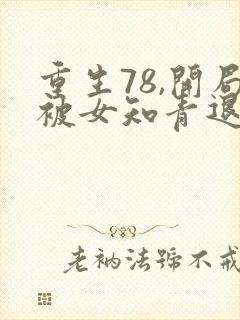 重生78,開局
被女知青退
老衲法號不戒